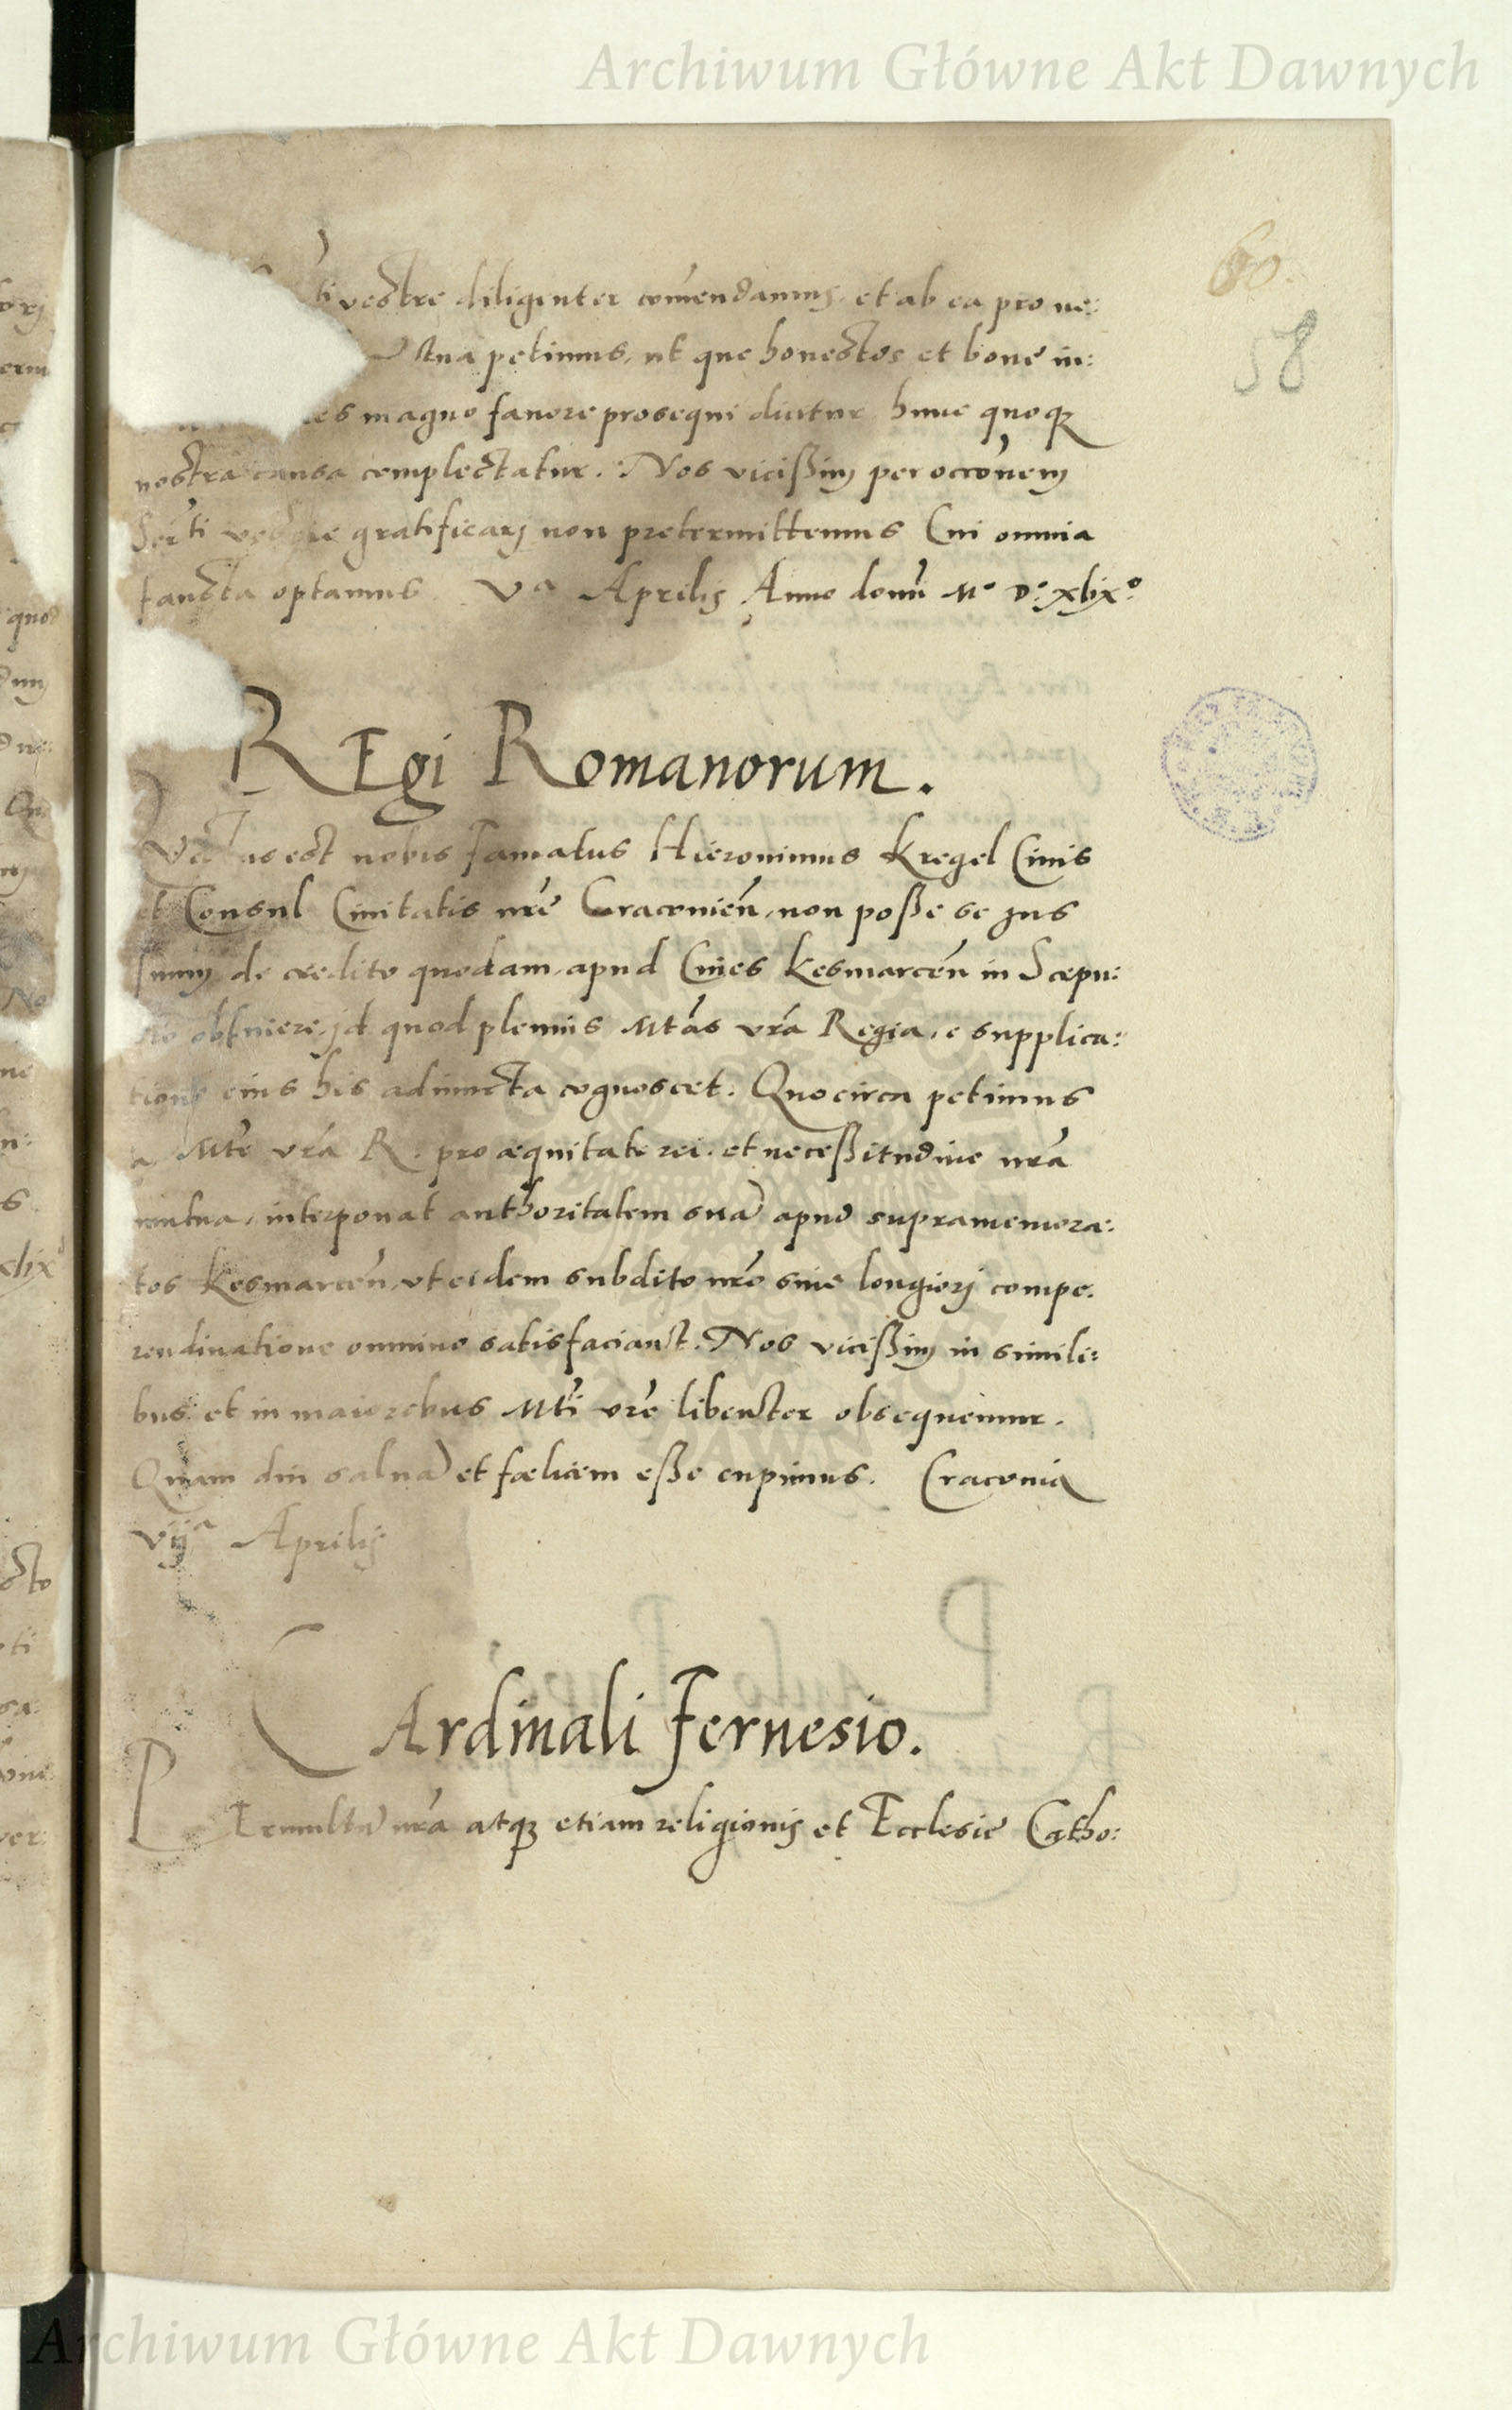 Archiwum Główne Akt Dawnych
60.
58
ti vestre diligenter com̄endamus, et ab ea pro ne:
petimus, ut que honestos et bone in:
magno favore prosequi dicitur hunc quoqʒ
nostra causa complectatur. Nos vicißim per occōnem
Serti vestre gratificarj non pretermittemus Cui omnia
fausta optamus Va Aprilis Anno domī Mº Dº xlixº
REgi Romanorum.
Questus est nobis famatus Hieronimus Kregel Civis
et Consul Civitatis nrē Cracovieñ, non poße se jus
suum de credito quodam, apud Cives Kesmarceñ in Scepu:
sio obtinere, jd quod plenius Mtās vrā Regia, e supplica:
tione eius his adiuncta cognoscet. Quocirca petimus
a Mtē vrā R. pro æquitate rei, et neceßitudine nrā
mutua, interponat authoritatem suā apud supramemora:
tos Kesmarceñ, ut eidem subdito nrō sine longiorj compe:
rendinatione omnino satisfaciant. Nos vicißim in simili:
bus et in maioribus Mtī vrē libenter obsequemur.
Quam diu salvā et fœlicem eße cupimus. Cracovia
vija Aprilis
CArdinali Fernesio.
PErmultū nrā atqʒ etiam religionis et Ecclesie Catho:
Archiwum Główne Akt Dawnych